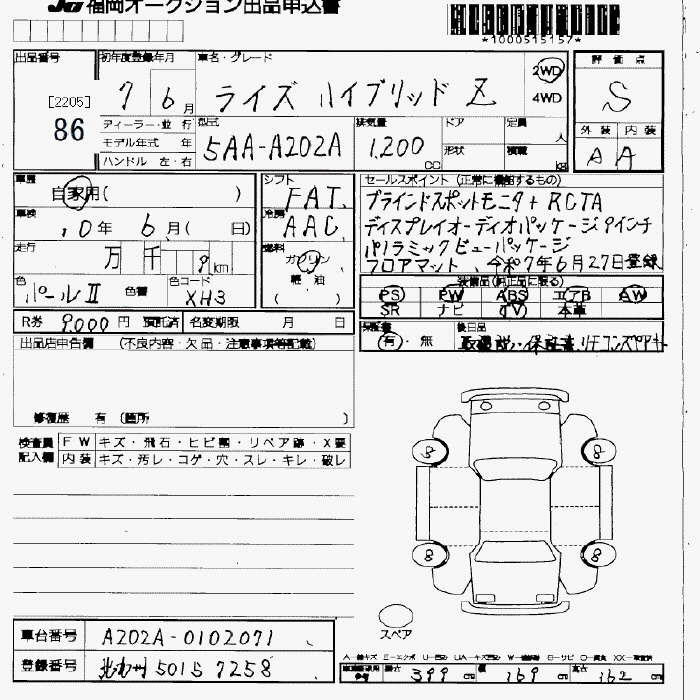 JU 福岡オークション出品申込書
*1000515157*
出品番号
[2205]
86
初年度登録年月
7 6月
車名・グレード
ライズ ハイブリッド Z
2WD
4WD
評価点
S
外装 内装
A A
ディーラー・並行
モデル年式 年
ハンドル 左・右
型式
5AA-A202A
排気量
1,200 cc
ドア
形状
定員 人
積載 kg
車歴
自家用( )
車検
10年 6月( 日)
走行
万 千 9 km
色
パールⅡ
色替
色コード
XH3
シフト
FAT
冷房
AAC
燃料
ガソリン
軽・油
( )
セールスポイント (正常に機能するもの)
ブラインドスポットモニタ+RCTA
ディスプレイオーディオパッケージ9インチ
パノラミックビューパッケージ
フロアマット、令和7年6月27日登録
装備品(純正品に限る)
PS PW ABS エアB AW
SR ナビ TV 本革
R券 9,000円 預託済 名変期限 月 日
保証書
有・無
後日品
取説・保証書、リモコンスペアキー
出品店申告欄 (不良内容・欠品・注意事項等記載)
修復歴 有(箇所 )
検査員
記入欄
FW キズ・飛石・ヒビ割・リペア跡・X要
内装 キズ・汚レ・コゲ・穴・スレ・キレ・破レ
8 8
8 8
スペア
車台番号 A202A-0102071
登録番号 北九州 501 ら 7258
長さ 399 cm 幅 169 cm 高さ 162 cm